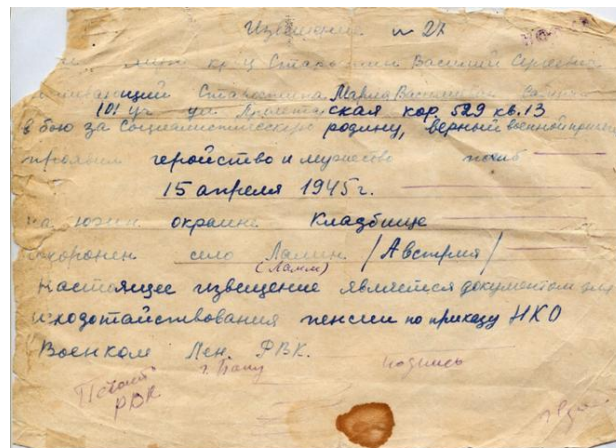 Извещение № 27
красноармеец Старостин Василий Сергеевич
Старостина Мария Васильевна
101 уч ул Пролетарская кор. 529 кв. 13
в бою за Социалистическую родину, верный военной присяге
проявив геройство и мужество погиб
15 апреля 1945 г.
на южн окраине Кладбище
похоронен село Ламин /Австрия/
(Ламм)
Настоящее извещение является документом для
исходотайствования пенсии по приказу НКО
Военком Лен. РВК.
г. Баку подпись
Печать
РВК